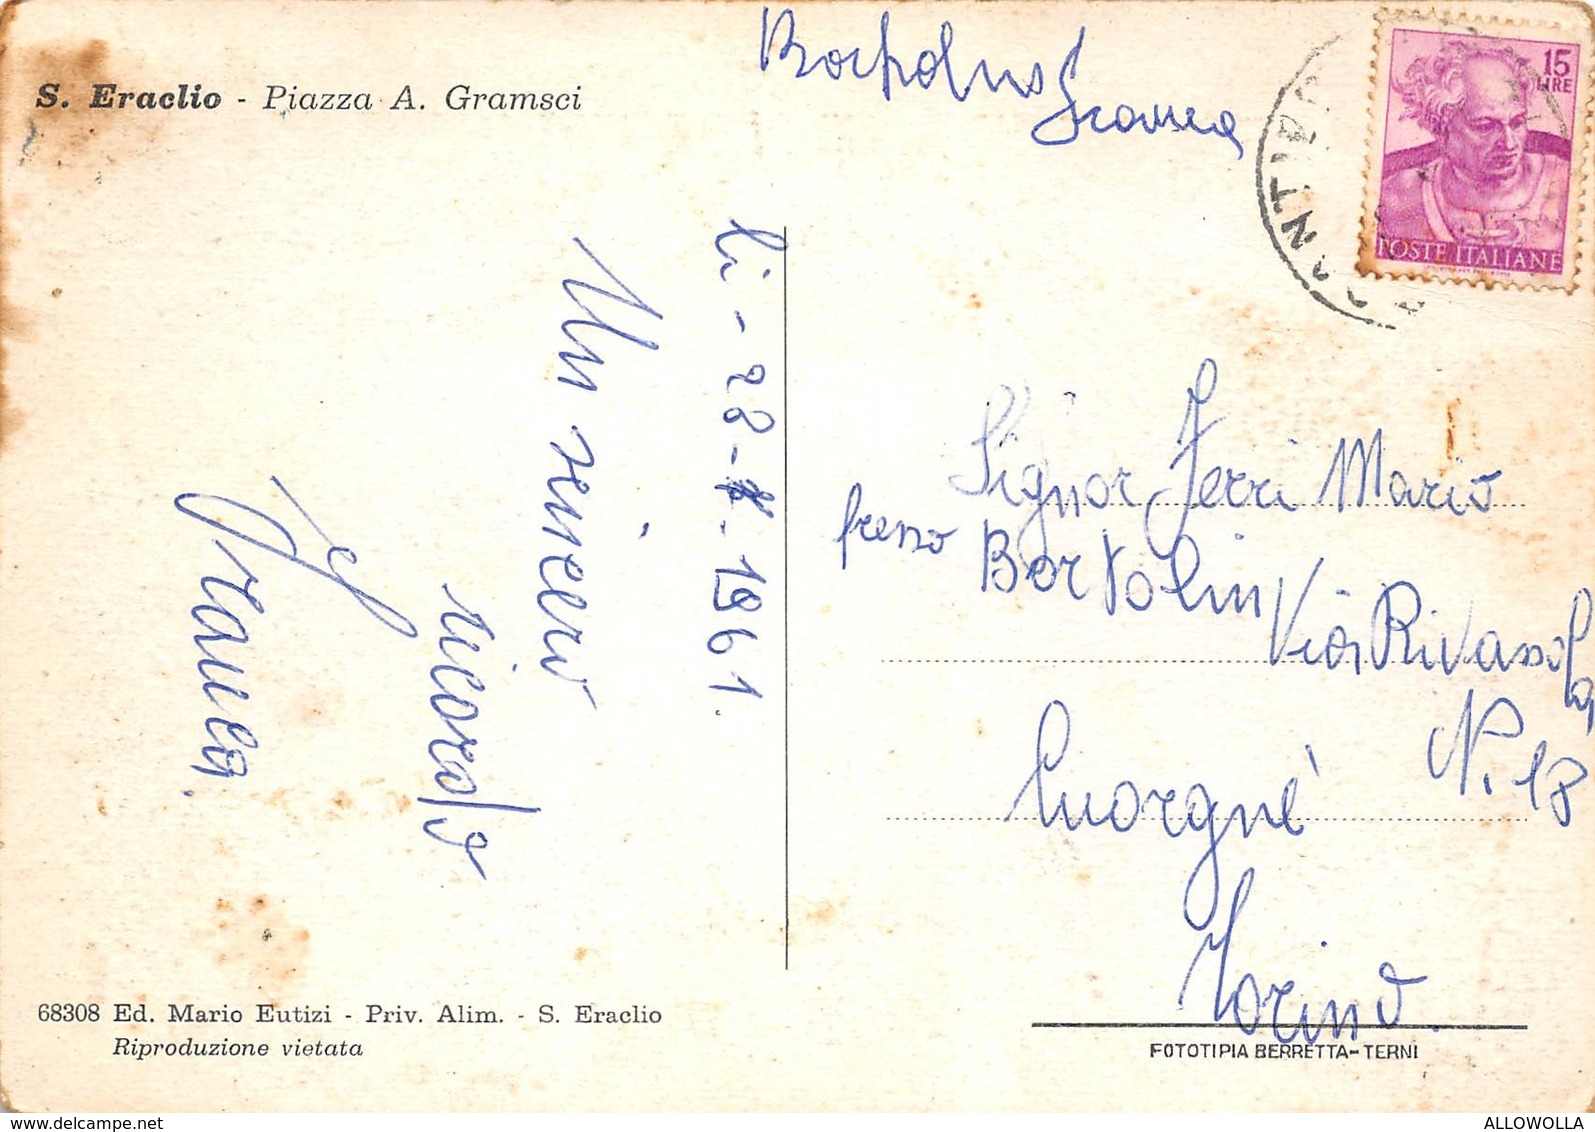 S. Eraclio - Piazza A. Gramsci
Franca
15
LIRE
POSTE ITALIANE
li - 28 - - 1961.
Un sincero
ricordo
Franca.
Signor Ferri Mario
presso Bortolin Via Rivassola
N. 18
Cuorgnè
Torino.
68308 Ed. Mario Eutizi - Priv. Alim. - S. Eraclio
Riproduzione vietata
FOTOTIPIA BERRETTA - TERNI
www.delcampe.net
ALLOWOLLA